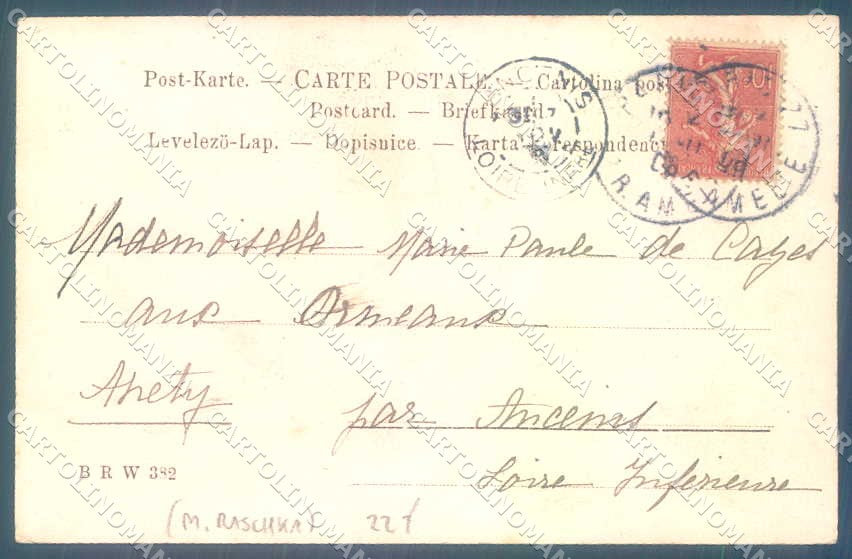 Post-Karte. — CARTE POSTALE. — Cartolina pos
Postcard. — Briefkaard.
Levelező-Lap. — Dopisnice. — Karta respondenc
10
ANCENIS
LOIRE INF
R. AM
AMELLE
Mademoiselle Marie Paule de Cazes
aux Ormeaux
Anetz par Ancenis
Loire Inférieure
B R W 382
(M. RASCHKA) 221
CARTOLINOMANIA